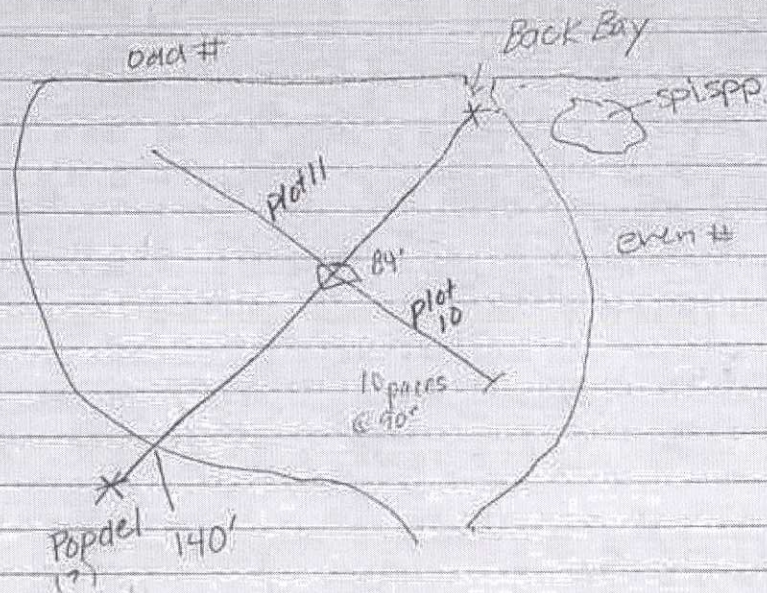 odd #
Back Bay
spi.spp.
plot 11
even #
84'
plot
10
10 paces
@ 90°
Popdel
(?)
140'